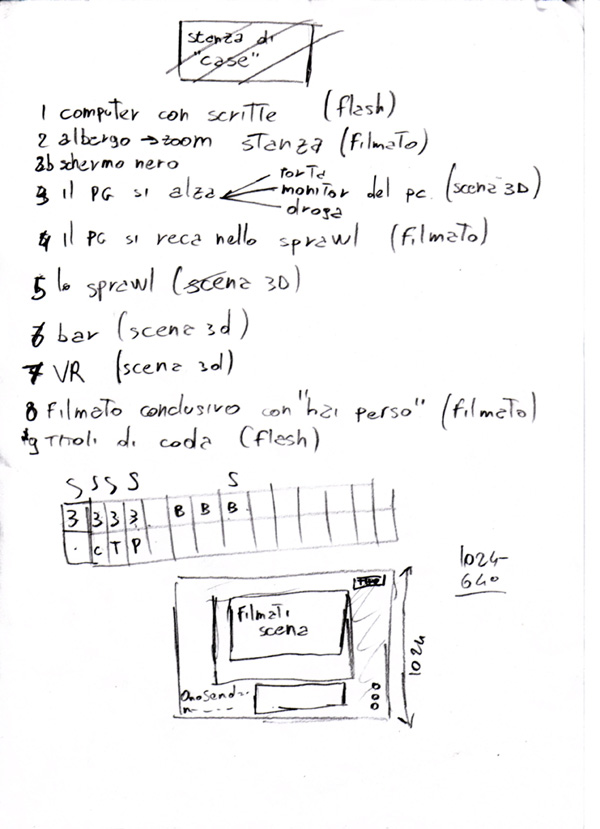 stanza di
"case"
1 computer con scritte (flash)
2 albergo → zoom stanza (filmato)
2b schermo nero
3 il PG si alza porta
monitor del pc. (scena 3D)
droga
4 il PG si reca nello sprawl (filmato)
5 lo sprawl (scena 3D)
6 bar (scena 3d)
7 VR (scena 3d)
8 filmato conclusivo con "hai perso" (filmato)
9 Titoli di coda (flash)
S S S S S
3 3 3 3 B B B
. C T P
1024-
640
filmati
scena
1024
OnoSend..